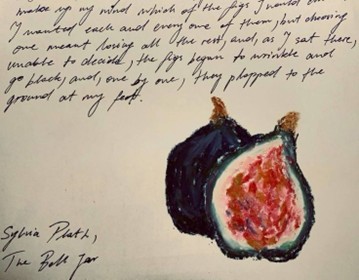 make up my mind which of the figs I would
I wanted each and every one of them, but choosing
one meant losing all the rest, and, as I sat there,
unable to decide, the figs began to wrinkle and
go black, and, one by one, they plopped to the
ground at my feet.
Sylvia Plath,
The Bell Jar